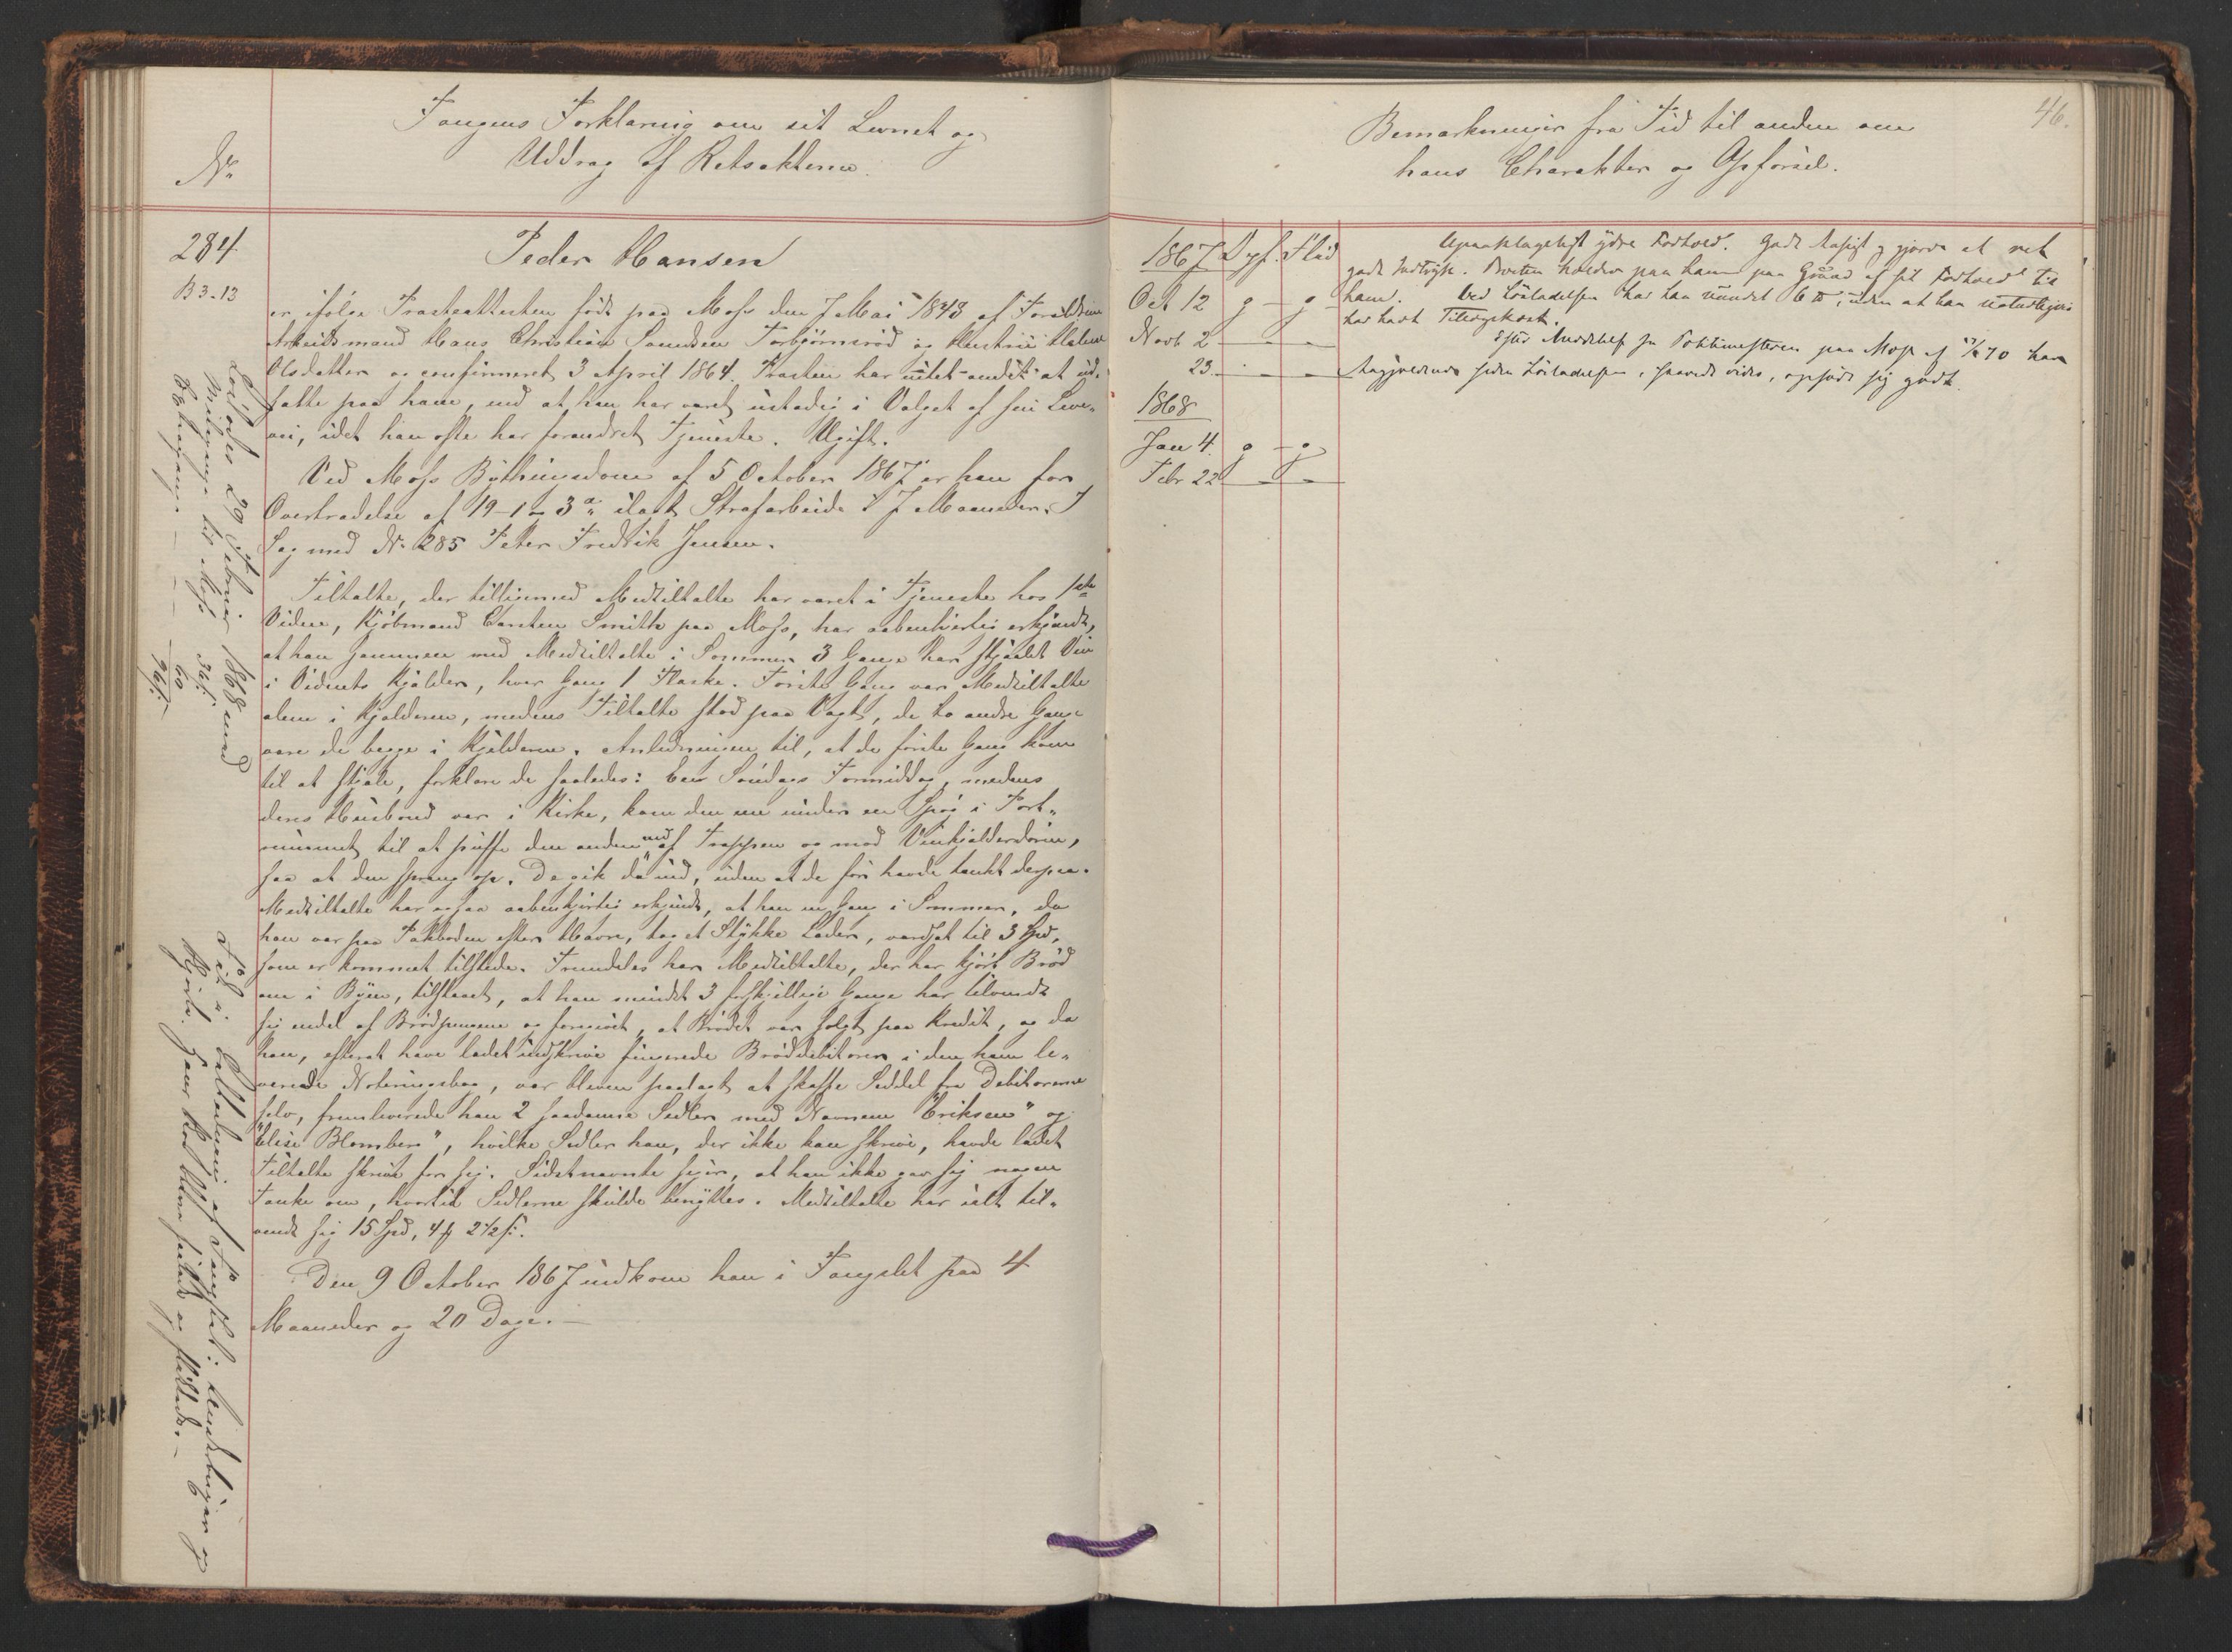 Fangens Forklaring om sit Levnet og
Uddrag af Retsakterne.
No
284
B 3-13
Peder Hansen
er ifølge Præsteattesten født paa Moss den 7 Mai 1848 af Forældrene
Arbeidsmand Hans Christian Torbjørnsrød og Hustru
Olsdatter og confirmeret 3 April 1864. Præsten har intet andet at ud-
sætte paa ham, end at han har været ustadig i Valget af sin Leve-
vei, idet han ofte har forandret Tjeneste. Ugift.
Ved Moss Bythingsdom af 5 October 1867 er han for
Overtrædelse af 19-1 3 a ilagt Strafarbeide i 7 Maaneder. I
Sag med No 285 Peter Fredrik Jensen.
Tiltalte, der tilligemed Medtiltalte har været i Tjeneste hos 1ste
Vidne, Kjøbmand Carsten Smith paa Moss, har aabenhjertig erkjendt,
at han sammen med Medtiltalte i Sommer 3 Gange har stjaalet Vin
i Vidnets Kjælder, hver Gang 1 Flaske. Første Gang var Medtiltalte
alene i Kjælderen, medens Tiltalte stod paa Vagt, de to andre Gange
vare de begge i Kjælderen. Anledningen til, at de første Gang kom
til at stjæle, forklare de saaledes: En Søndags Formiddag, medens
deres Husbond var i Kirke, kom den ene under en Spøg i
til at puffe den anden ned af Trappen og mod Vinkjælderdøren,
saa at den sprang op. De gik da ind, uden at de før havde tænkt derpaa.
Medtiltalte har ogsaa aabenhjertig erkjendt, at han en Gang i Sommer, da
han var paa Pakboden efter Havre, tog et Stykke Læder, værdsat til 3 Spd,
som er kommet tilstede. Fremdeles har Medtiltalte, der har kjørt Brød
om i Byen, tilstaaet, at han mindst 3 forskjellige Gange har tilvendt
sig endel af Brødpengene og foregivet, at Brødet var solgt paa Kredit, og da
han, efterat have ladet indskrive fingerede Brøddebitorer i den ham le-
verede Noteringsbog, var bleven paalagt at skaffe Seddel fra Debitorerne
selv, fremleverede han 2 saadanne Sedler med Navnene "Eriksen" og
"Elise Blomberg", hvilke Sedler han, der ikke kan skrive, havde ladet
Tiltalte skrive for sig. Sidstnævnte siger, at han ikke gav sig nogen
Tanke om, hvortil Sedlerne skulde benyttes. Medtiltalte har ialt til-
vendt sig 15 Spd, 4 2 1/2 s.
Den 9 October 1867 indkom han i Fængslet paa 4
Maaneder og 20 Dage.
Løslades 29 Februar 1868 med
Milepenge til Moss 36 s.
60
96 s.
Fik i af Fængslet:
46.
Bemærkninger fra Tid til anden om
hans Charakter og Opførsel.
1867 Opf. Flid
Oct 12 g g
Novb 2
23
1868
Jan 4 g g
Febr 22
Upaaklageligt ydre Forhold. Godt og gjorde et ret
godt Indtryk. Præsten holder paa ham paa Grund af sit Forhold til
ham. Ved Løsladelsen har han vundet 6 ℔, uden at han
har havt Tillægskost.
Efter Meddelelse fra Politimesteren paa Moss af /70 har
Angjældende siden Løsladelsen, saavidt vides, opført sig godt.